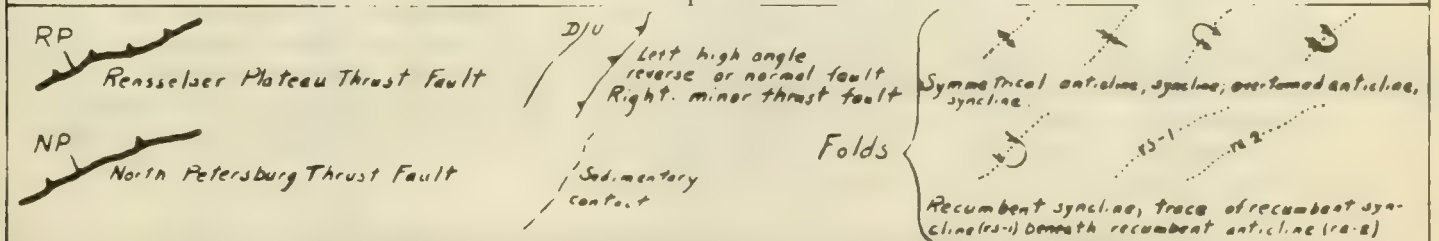 RP
Rensselser Plateau Thrust Fault
NP
North Petersburg Thrust Fault
D/U
Left high angle
reverse or normal fault
Right. minor thrust fault
Sedimentary
contact
Folds
Symmetrical anticline, syncline; overturned anticline,
syncline.
rs-1
ra-2
Recumbent syncline, trace of recumbent syn-
cline (rs-1) beneath recumbent anticline (ra-2)